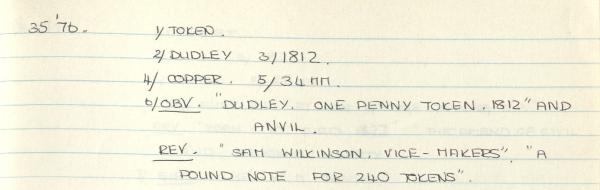 35 '76. 1/ TOKEN.
2/ DUDLEY 3/1812.
4/ COPPER. 5/34MM.
6/ OBV. "DUDLEY. ONE PENNY TOKEN. 1812" AND
ANVIL.
REV. "SAM WILKINSON. VICE-MAKERS". "A
POUND NOTE FOR 240 TOKENS".